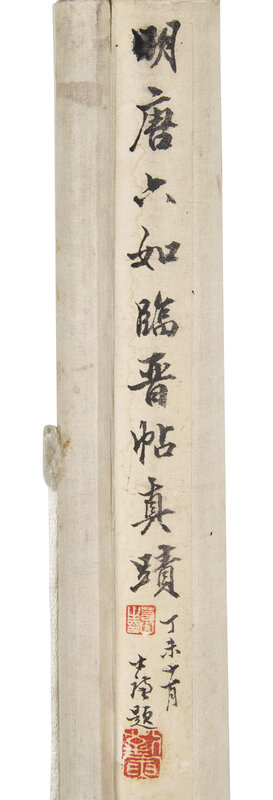 明唐六如臨晉帖真蹟
丁未十一月
士禛題